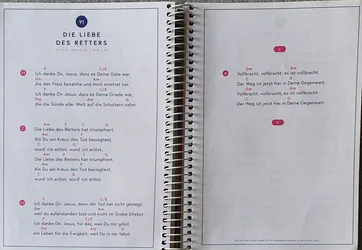 91
DIE LIEBE
DES RETTERS
V1
F C/E
Ich danke Dir, Jesus, dass es Deine Güte war,
Dm
die den Preis bezahlte und mich errettet hat.
F C/E
Ich danke Dir, Jesus, dass es Deine Gnade war,
Dm Am G
die die Sünde aller Welt auf die Schultern nahm.
C
Am F C G
Die Liebe des Retters hat triumphiert.
Am F
Als Du am Kreuz den Tod besiegtest,
C G
wurd' ich erlöst, wurd' ich erlöst.
Am F C G
Die Liebe des Retters hat triumphiert.
Am F
Als Du am Kreuz den Tod besiegtest,
C G
wurd' ich erlöst, wurd' ich erlöst.
V2
F C/E
Ich danke Dir, Jesus, denn der Tod hat nicht gesiegt,
Dm
weil du auferstanden bist und nicht im Grabe bliebst.
F C/E
Ich danke Dir, Jesus, für das, was Du mir gibst,
Dm Am G
ein Leben für die Ewigkeit, weil Du in mir lebst.
C
B
Am Dm
Vollbracht, vollbracht, es ist vollbracht.
C G
Der Weg ist jetzt frei in Deine Gegenwart.
Am Dm
Vollbracht, vollbracht, es ist vollbracht.
C G
Der Weg ist jetzt frei in Deine Gegenwart.
C